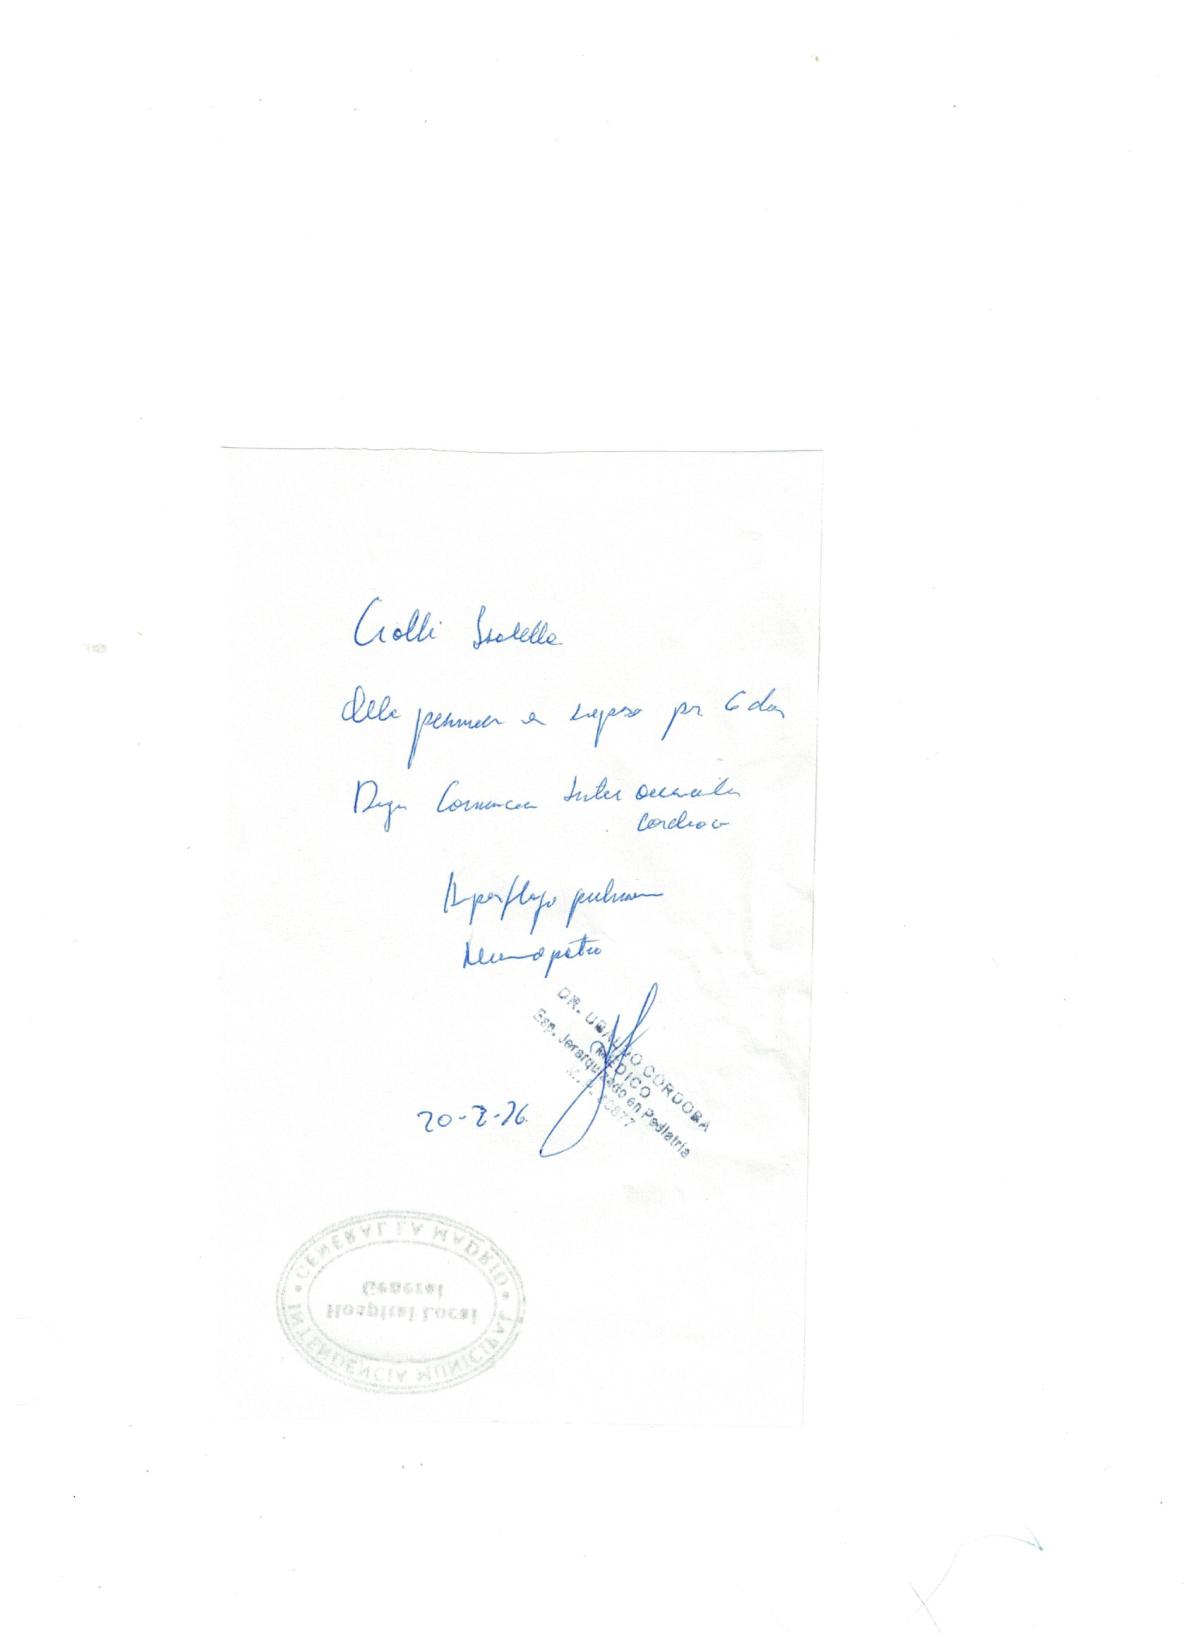 Ciolli Isabella
Debe permanecer en reposo por 6 días
Comunicación Inter auricular
cardíaca
Hiperflujo pulmonar
Neumopatía
DR. UBALDO CORDOBA
MEDICO
Esp. Jerarquizado en Pediatria
20877
20-2-26
INTENDENCIA MUNICIPAL
Hospital Local
General
GENERAL LA MADRID